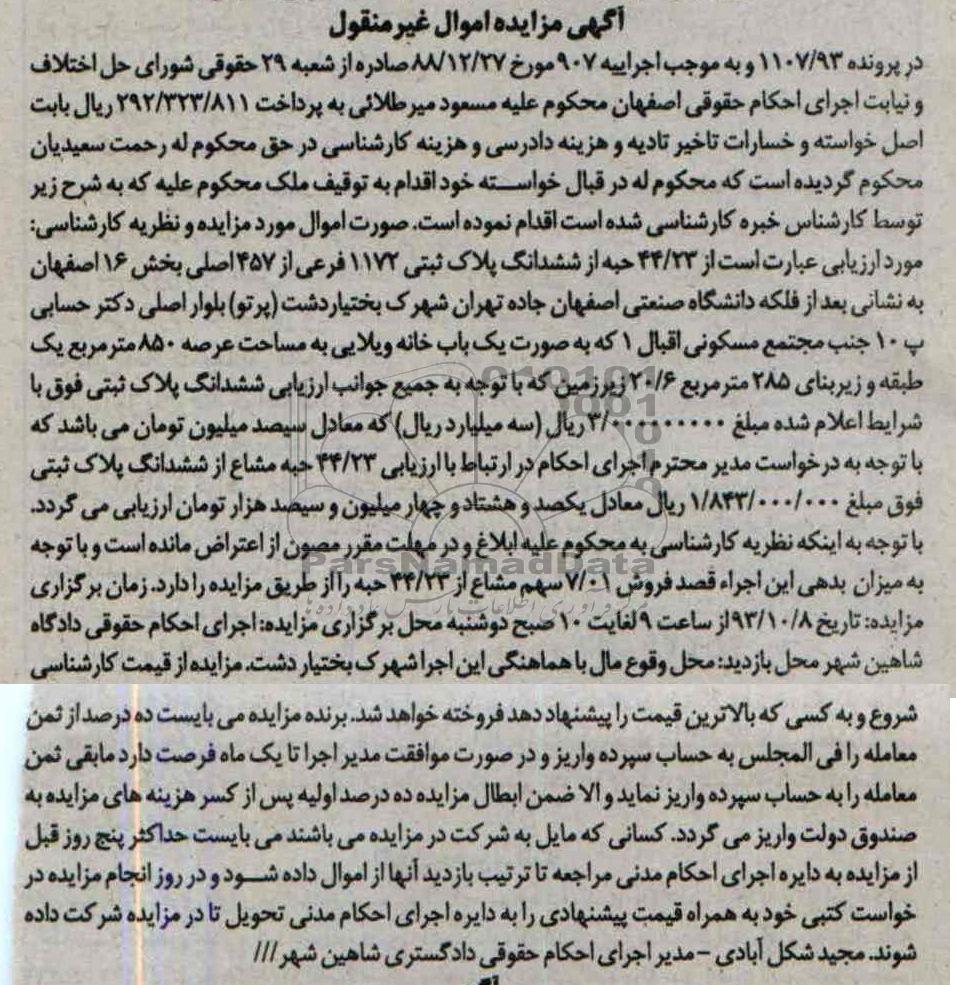 آگهی مزایده اموال غیر منقول
در پرونده ۱۱۰۷/۹۳ و به موجب اجراییه ۹۰۷ مورخ ۸۸/۱۲/۲۷ صادره از شعبه ۲۹ حقوقی شورای حل اختلاف
و نیابت اجرای احکام حقوقی اصفهان محکوم علیه مسعود میرطلائی به پرداخت ۲۹۲/۳۲۳/۸۱۱ ریال بابت
اصل خواسته و خسارات تاخیر تادیه و هزینه دادرسی و هزینه کارشناسی در حق محکوم له رحمت سعیدیان
محکوم گردیده است که محکوم له در قبال خواسته خود اقدام به توقیف ملک محکوم علیه که به شرح زیر
توسط کارشناس خبره کارشناسی شده است اقدام نموده است. صورت اموال مورد مزایده و نظریه کارشناسی:
مورد ارزیابی عبارت است از ۴۴/۲۳ حبه از ششدانگ پلاک ثبتی ۱۱۷۲ فرعی از ۴۵۷ اصلی بخش ۱۶ اصفهان
به نشانی بعد از فلکه دانشگاه صنعتی اصفهان جاده تهران شهرک بختیاردشت (پرتو) بلوار اصلی دکتر حسابی
پ ۱۰ جنب مجتمع مسکونی اقبال ۱ که به صورت یک باب خانه ویلایی به مساحت عرصه ۸۵۰ مترمربع یک
طبقه و زیربنای ۲۸۵ مترمربع ۲۰/۶ زیرزمین که با توجه به جمیع جوانب ارزیابی ششدانگ پلاک ثبتی فوق با
شرایط اعلام شده مبلغ ۳/۰۰۰۰۰۰۰۰۰ ریال (سه میلیارد ریال) که معادل سیصد میلیون تومان می باشد که
با توجه به درخواست مدیر محترم اجرای احکام در ارتباط با ارزیابی ۴۴/۲۳ حبه مشاع از ششدانگ پلاک ثبتی
فوق مبلغ ۱/۸۴۳/۰۰۰/۰۰۰ ریال معادل یکصد و هشتاد و چهار میلیون و سیصد هزار تومان ارزیابی می گردد.
با توجه به اینکه نظریه کارشناسی به محکوم علیه ابلاغ و در مهلت مقرر مصون از اعتراض مانده است و با توجه
ParsNamadData
به میزان بدهی این اجراء قصد فروش ۷/۰۱ سهم مشاع از ۴۴/۲۳ حبه را از طریق مزایده را دارد. زمان برگزاری
مزایده: تاریخ ۹۳/۱۰/۸ از ساعت ۹ لغایت ۱۰ صبح دوشنبه محل برگزاری مزایده: اجرای احکام حقوقی دادگاه
شاهین شهر محل بازدید: محل وقوع مال با هماهنگی این اجرا شهرک بختیار دشت. مزایده از قیمت کارشناسی
شروع و به کسی که بالاترین قیمت را پیشنهاد دهد فروخته خواهد شد. برنده مزایده می بایست ده درصد از ثمن
معامله را فی المجلس به حساب سپرده واریز و در صورت موافقت مدیر اجرا تا یک ماه فرصت دارد مابقی ثمن
معامله را به حساب سپرده واریز نماید و الا ضمن ابطال مزایده ده درصد اولیه پس از کسر هزینه های مزایده به
صندوق دولت واریز می گردد. کسانی که مایل به شرکت در مزایده می باشند می بایست حداکثر پنج روز قبل
از مزایده به دایره اجرای احکام مدنی مراجعه تا ترتیب بازدید آنها از اموال داده شود و در روز انجام مزایده در
خواست کتبی خود به همراه قیمت پیشنهادی را به دایره اجرای احکام مدنی تحویل تا در مزایده شرکت داده
شوند. مجید شکل آبادی - مدیر اجرای احکام حقوقی دادگستری شاهین شهر ///